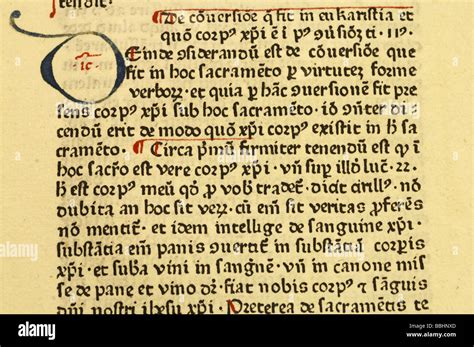 De cōuersiōe q̄ fit in eukaristia et
quō corpꝰ xp̄i ē ī ipso 
Einde ꝯsiderandū est de cōuersiōe que
fit in hoc sacramēto ꝑ virtutez forme
verborꝝ · et quia ꝑ hāc ꝯuersionē fit pre
sens corpꝰ xp̄i sub hoc sacramēto · iō ꝯn̄ter di
cendū erit de modo quō xp̄i corpꝰ existit in h̄ sa
cramēto · ¶ Circa pͥmū firmiter tenendū est qͥ i
hoc sacrō est vere corpꝰ xp̄i · vn̄ suꝑ illō luc · 22 ·
h̄ est corpꝰ meū qō ꝓ vob̄ tradet̄ · dicit cirillꝰ · nō
dubita an hoc sit verꝝ · cū em̄ sit veritas ꝓferēs
nō mentit̄ · et idem intellige de sanguine xp̄i ·
substātia em̄ panis ꝯuertit̄ in substātiā corꝑis
xp̄i · et suba vini in sangnē · vn̄ in canone mis
se de pane et vino dr̄ · fiat nobis corpꝰ ⁊ sāguis
dn̄i nostri ihesu xp̄i · ¶ Preterea de sacramētis te
alamy
alamy
Image ID: BBHNXD
www.alamy.com